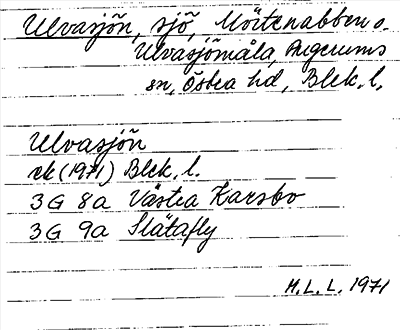 Ulvasjön, sjö, Möitenabben o.
Ulvasjömåla, Augerums
sn, Östra hd, Blek. l.
Ulvasjön
ek (1971) Blek. l.
3G 8a Västra Karsbo
3G 9a Slätafly
M.L.L. 1971